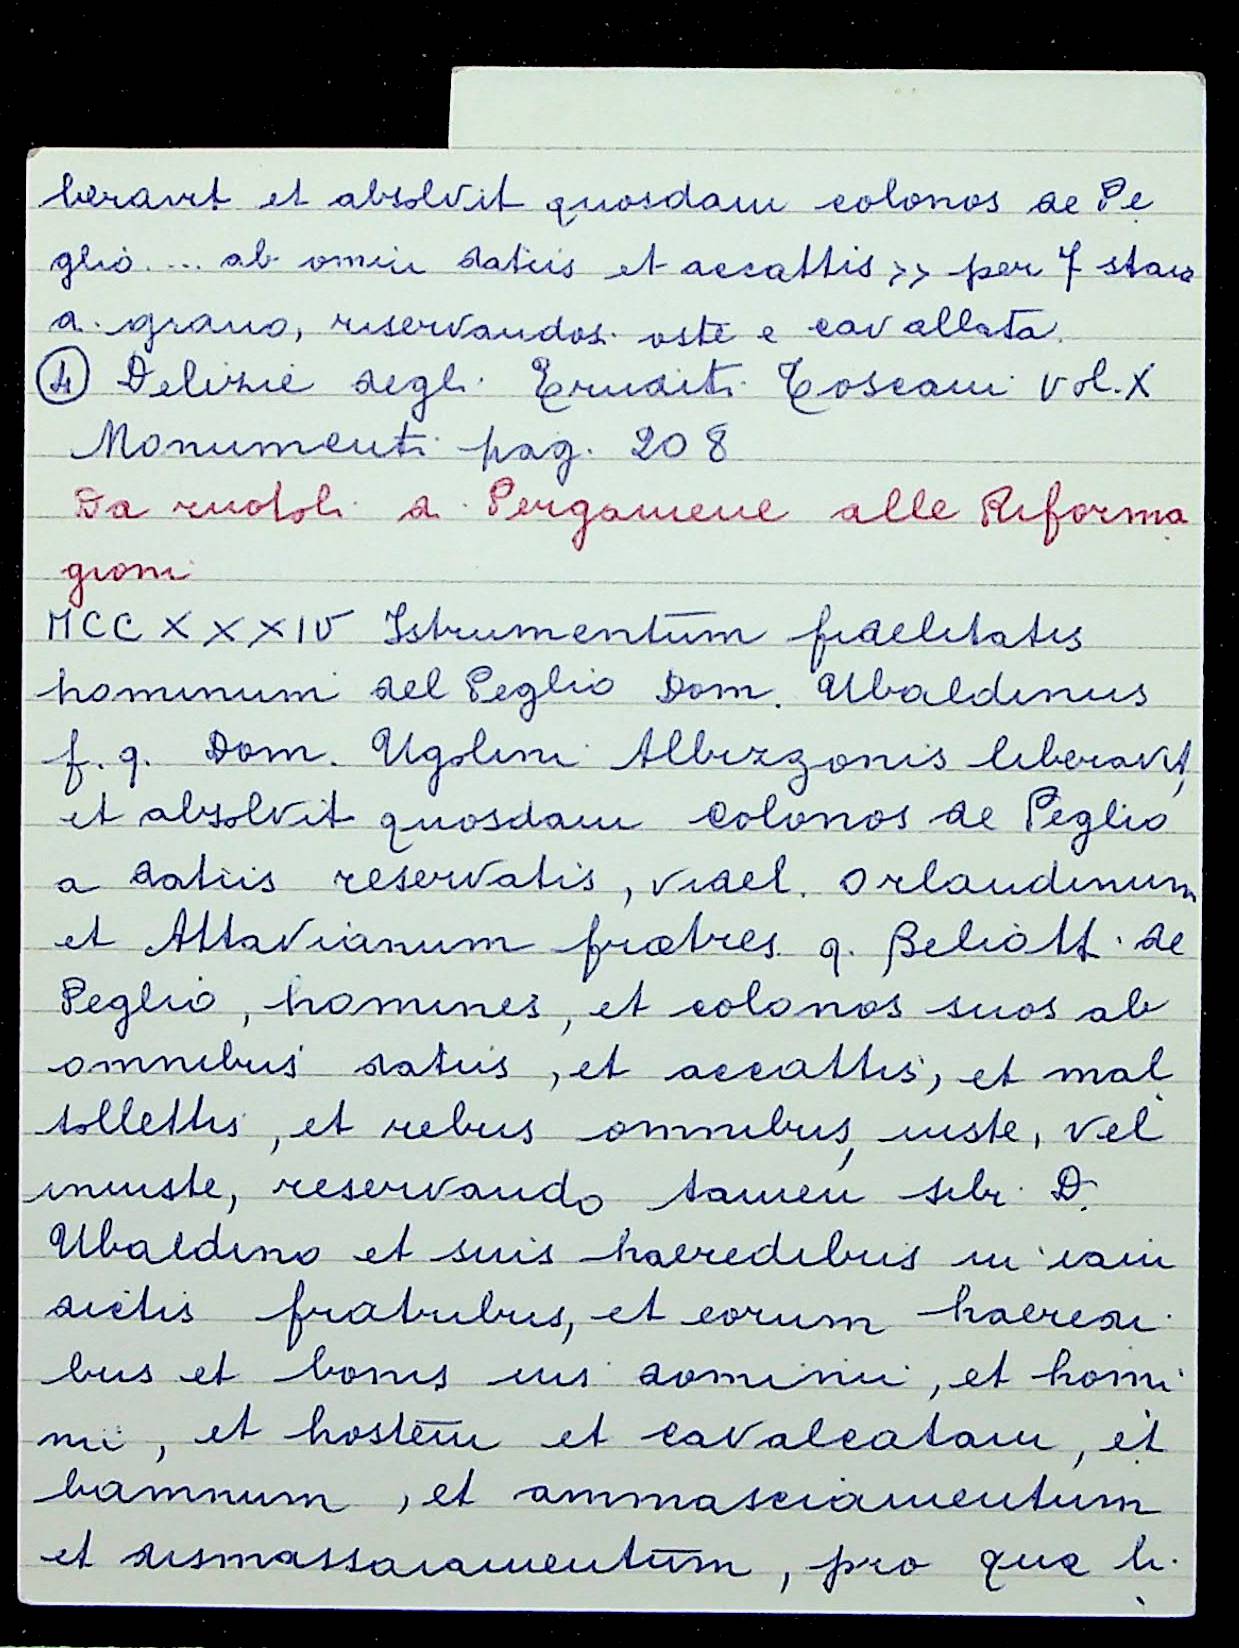 beravit et absolvit quosdam colonos de Pe
glio.... ab omni datiis et accattis >> per 7 staia
di grano, riservandosi oste e cavallata.
④ Delizie degli Eruditi Toscani vol. X
Monumenti pag. 208
Da ruotoli di Pergamene alle Riforma
gioni
MCCXXXIV Istrumentum fidelitatis
hominum del Peglio Dom. Ubaldinus
f. q. Dom. Ugolini Albizzonis liberavit,
et absolvit quosdam colonos de Peglio
a datiis reservatis, videl. Orlandinum
et Attavianum fratres q. Beliott. de
Peglio, homines, et colonos suos ab
omnibus datiis, et accattis, et mal
tollettis, et rebus omnibus, iuste, vel
iniuste, reservando tamen sibi D.
Ubaldino et suis haeredibus in iam
dictis fratribus, et eorum haeredi
bus et bonis ius dominii, et homi
nii, et hostem et cavalcatam, et
bamnum, et ammasciamentum
et dismassaiamentum, pro qua li